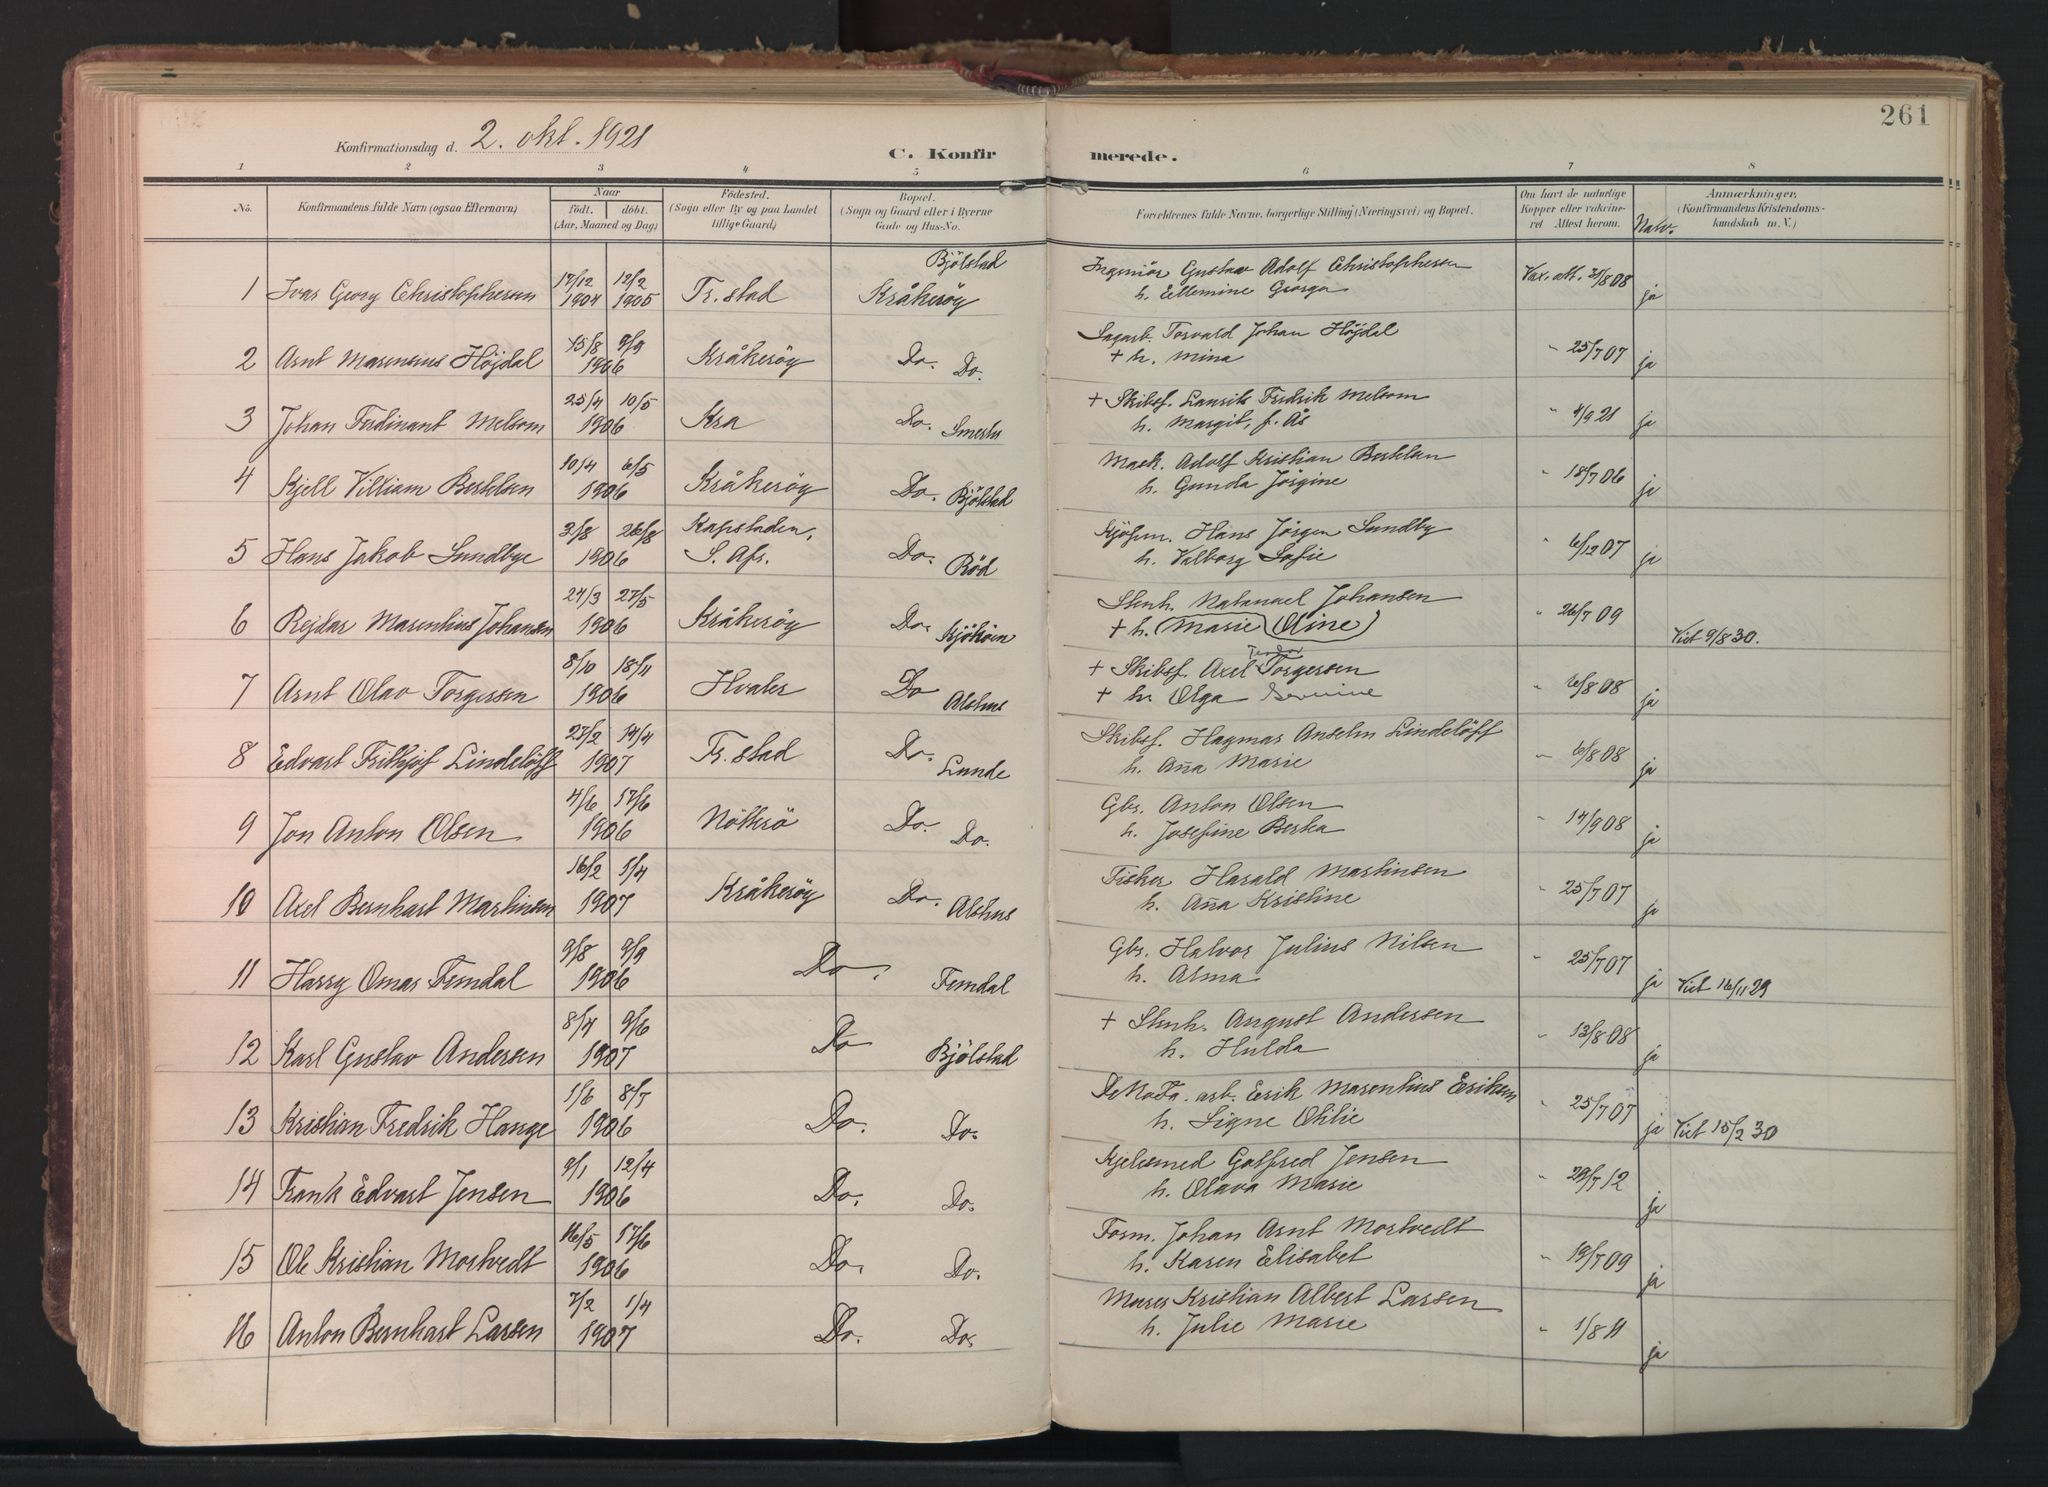 261
Konfirmationsdag d. 2. okt. 1921
C. Konfirmerede.
1 2 3 4 5 6 7 8
No. Konfirmandens fulde Navn (ogsaa Efternavn) Naar født. døbt. (Aar, Maaned og Dag) Fødested. (Sogn eller By og paa Landet tillige Gaard) Bopæl. (Sogn og Gaard eller i Byerne Gade og Hus-No. Forældrenes fulde Navne, borgerlige Stilling (Næringsvei) og Bopæl. Om havt de naturlige Kopper eller vakcineret Attest herom. Natv. Anmærkninger. (Konfirmandens Kristendomskundskab m. V.)
1 Ivar Georg Christophersen 17/12 1904 12/2 1905 Fr.stad Kråkerøy Bjölstad Ingeniör Gustav Adolf Christophersen
h. Ellemine Georga Vax. att. 31/8 08 ja
2 Arnt Marensius Höjdal 15/8 9/9 1906 Kråkeröy Do. Do. Sagarb. Torvald Johan Höjdal
+ h. Mina " 25/7 07 ja
3 Johan Ferdinant Melsom 25/4 10/5 1906 Kra Do. + Skibsf. Laurits Fredrik Melsom
h. Margit, f. Ås " 4/9 21 ja
4 Kjell Villiam Berklsen 10/4 6/5 1906 Kråkeröy Do. Bjölstad Mask. Adolf Kristian
h. Gunda Jörgine " 18/7 06 ja
5 Hans Jakob Sundbye 3/8 26/8 1906 Kapstaden, S. Afr. Do. Röd Kjöpm. Hans Jörgen Sundby
h. Valborg Sofie " 6/12 07 ja
6 Rejdar Marenlius Johansen 24/3 27/5 1906 Kråkeröy Do. Kjököen Stenh. Natanael Johansen
+ h. (Marie (Oline) " 26/7 09 Viet 9/8 30.
7 Arnt Olav Torgersen 8/10 18/11 1906 Hvaler Do Alshus + Skibsf. Axel Teodor Torgersen
+ h. Olga " 6/8 08 ja
8 Edvart Frithjof Lindelöff 27/2 14/4 1907 Fr.stad Do. Lunde Skibsf. Hagmar Anselm Lindelöff
h. Anna Marie " 6/8 08 ja
9 Jon Anton Olsen 4/6 17/6 1906 Nötterö Do. Do. Gbr. Anton Olsen
h. Josefine Berta " 14/9 08 ja
10 Axel Bernhart Martinsen 16/2 1/4 1907 Kråkeröy Do. Alshus Fisker Harald Martinsen
h. Anna Kristine " 25/7 07 ja
11 Harry Omar Femdal 9/8 9/9 1906 Do. Femdal Gbr. Halvor Julius Nilsen
h. Alma " 25/7 07 ja Viet 16/11 29
12 Karl Gustav Andersen 8/4 9/6 1907 Do Bjölstad + Stenh. August Andersen
h. Hulda " 13/8 08 ja
13 Kristian Fredrik Hauge 1/6 8/7 1906 Do. Do. DeNoFa. arb. Erik Marentius Eriksen
h. Signe Othlie " 25/7 07 ja Viet 15/2 30
14 Frank Edvart Jensen 9/1 12/4 1906 Do. Do. Kjelesmed Gotfred Jensen
h. Olava Marie " 29/7 12 ja
15 Ole Kristian Mortvedt 16/5 17/6 1906 Do. Do. Form. Johan Arnt Mortvedt
h. Karen Elisabet " 19/7 09 ja
16 Anton Bernhart Larsen 7/2 1/4 1907 Do. Do. Murer Kristian Albert Larsen
h. Julie Marie " 1/8 11 ja